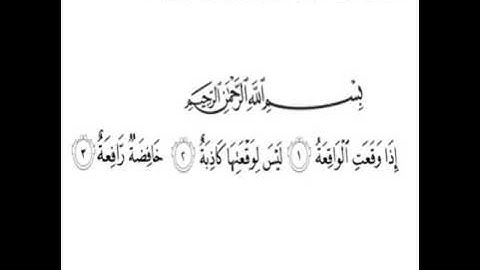 بِسْمِ ٱللَّهِ ٱلرَّحْمَٰنِ ٱلرَّحِيمِ
إِذَا وَقَعَتِ ٱلْوَاقِعَةُ ١ لَيْسَ لِوَقْعَتِهَا كَاذِبَةٌ ٢ خَافِضَةٌ رَّافِعَةٌ ٣